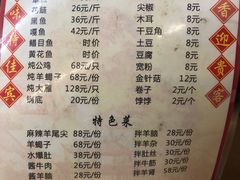 花鲢 26元/斤
黑鱼 35元/斤
嘎鱼 42元/斤
鲳目鱼 时价
黄花鱼 时价
炖公鸡 68元/只
炖羊蝎子 68元/份
炖大雁 128元/只
锅底 20元/份
尖椒 8元
木耳 8元
干豆角 8元
土豆 8元
豆腐 8元
宽粉 8元
金针菇 12元
卷子 2元/个
饽饽 2元/个
味
佳
宾
香
迎
贵
客
特色菜
麻辣羊尾尖 88元/份
羊蝎子 68元/份
水爆肚 38元/份
酱牛肉 58元/份
拌羊脑 28元/份
拌羊杂 30元/份
拌肚丝 30元/份
拌牛筋 30元/份
拌羊肾 58元/份